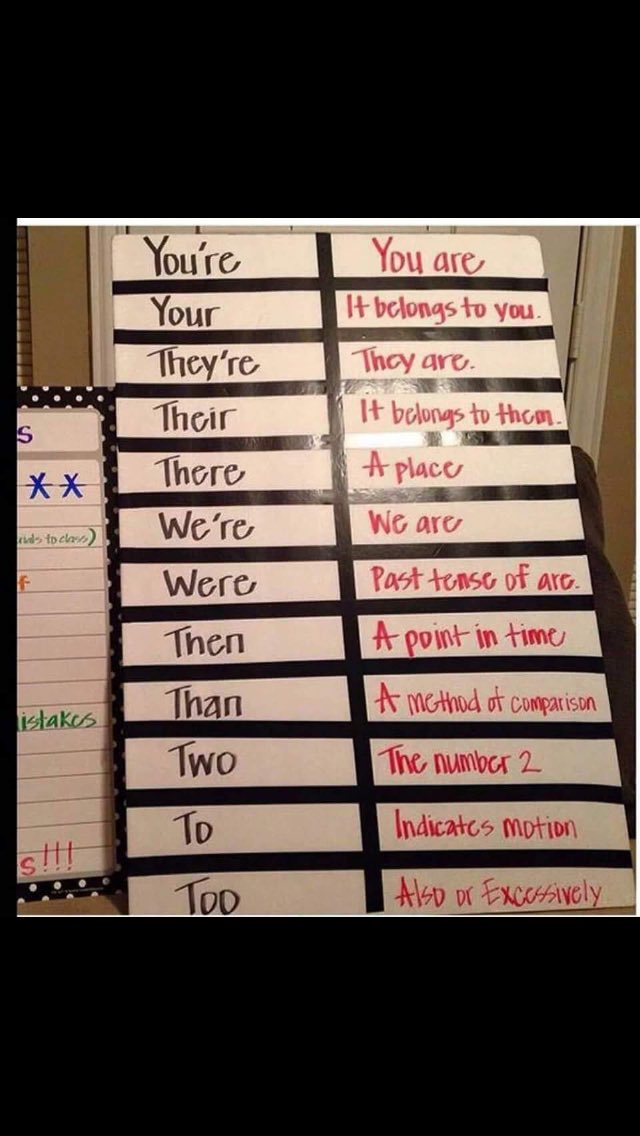 You're You are
Your It belongs to you.
They're They are.
Their It belongs to them.
There A place
We're We are
Were Past tense of are.
Then A point in time
Than A method of comparison
Two The number 2
To Indicates motion
Too Also or Excessively
s
X X
to class)
f
s!!!